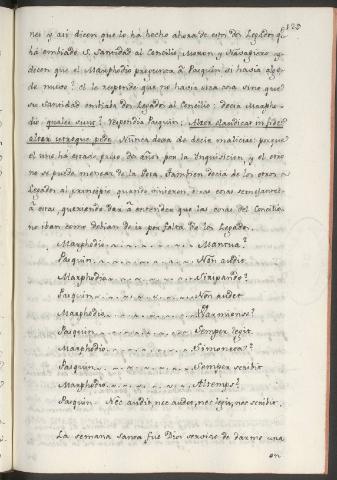 123
nes y assi dicen que lo ha hecho ahora de estos dos Legados que
ha embiado S. Santidad al Concilio, Moron y Navagiero y
dicen que el Marphodio pregunta à Pasquin si havia algo
de nuevo? el le responde que no havia otra cosa sino que
su Santidad embiaba dos Legados al Concilio: decia Marpho-
dio, quales sunt? respondia Pasquin; Alter claudicat in fide,
alter utroque pede. Nunca dexa de decir malicias: porque
el uno ha estado preso dos años por la Inquisicion, y el otro
no se puede menear de la Gota. Tambien decia de los otros
Legados al principio, quando vinieron, otras cosas semejantes
à estas, queriendo dar à entender que las cosas del Concilio
no iban como debian de ir por falta de los Legados.
Marphodio Mantua?
Pasquin Non audit
Marphodio Siripando?
Pasquin Non audet
Marphodio Warmiense?
Pasquin Semper legit
Marphodio Simoneta?
Pasquin Semper scribit
Marphodio Altemps?
Pasquin Nec audit, nec audet, nec legit, nec scribit.
La semana santa fue Dios servido de darme una
en